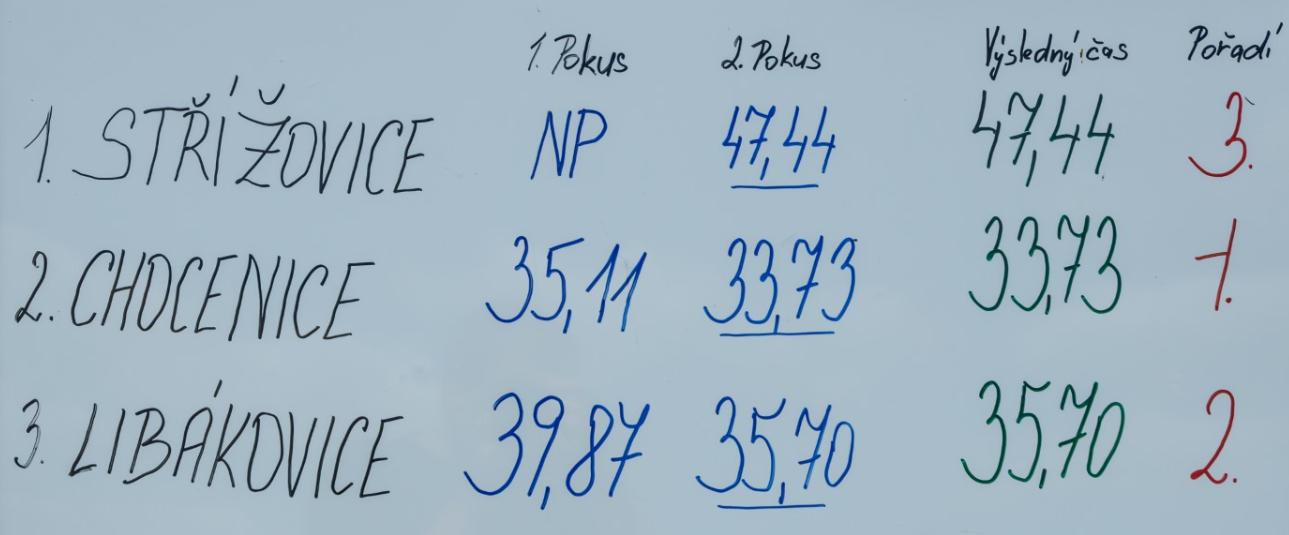 1. Pokus 2. Pokus Výsledný čas Pořadí
1. STŘÍŽOVICE NP 47,44 47,44 3.
2. CHOCENICE 35,11 33,73 33,73 1.
3. LIBÁKOVICE 39,87 35,70 35,70 2.